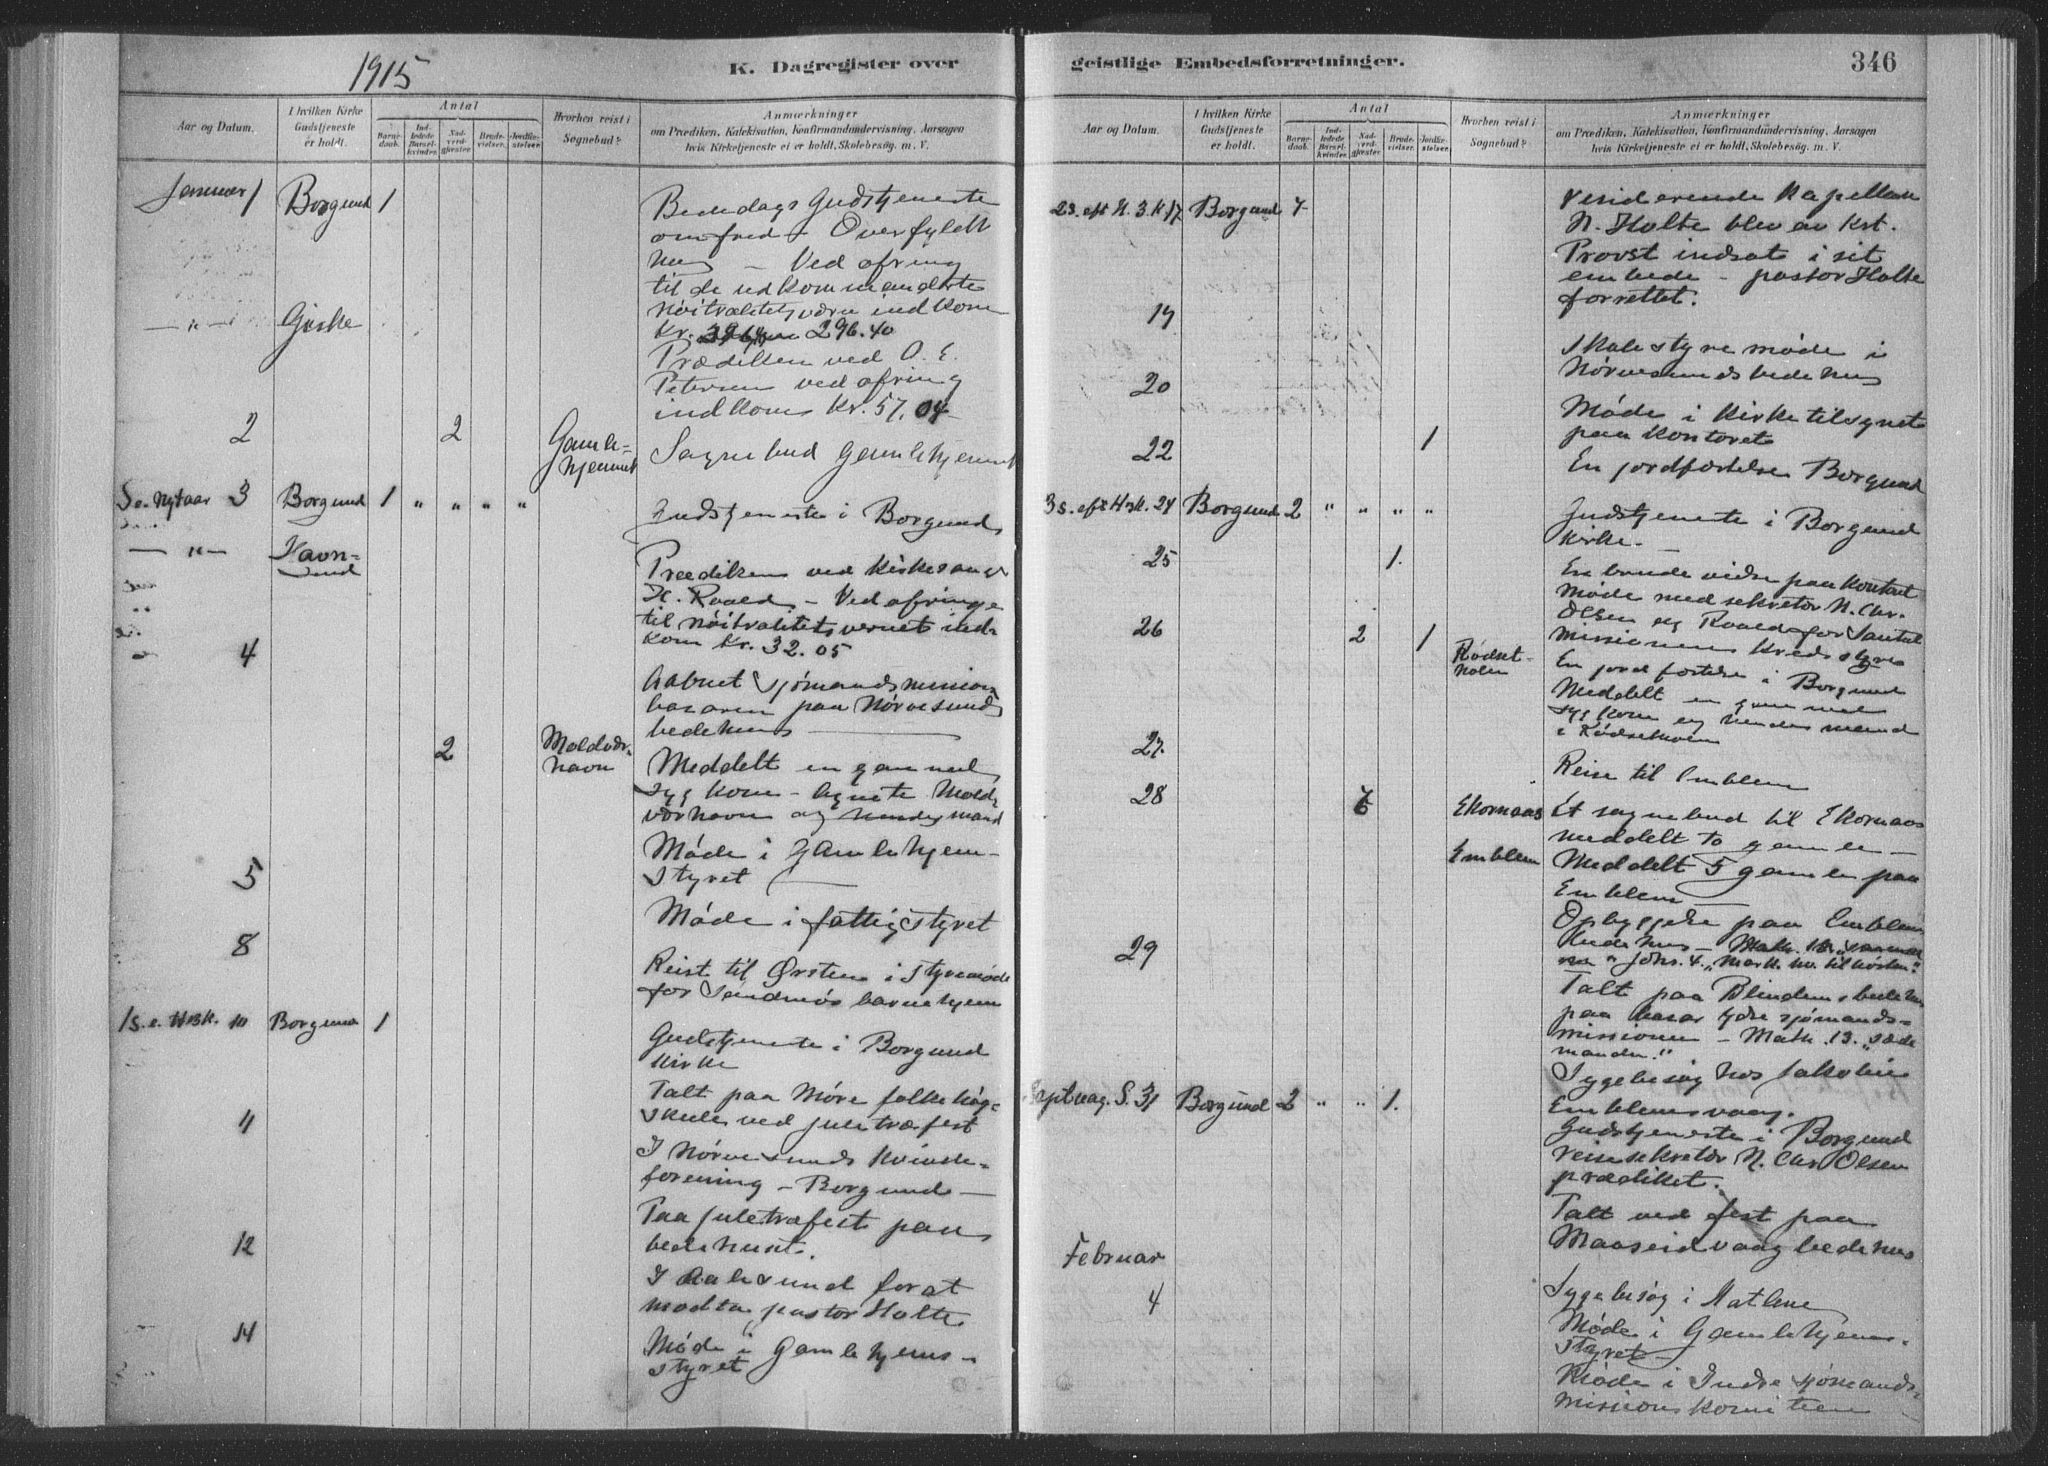 1915
K. Dagregister over
Aar og Datum.
I hvilken Kirke Gudstjeneste er holdt.
Antal
Barnedaab.
Indledede Barselkvinder.
Nadverdgjæster.
Brudevielser.
Jordfæstelser.
Hvorhen reist i Sognebud?
Anmærkninger
om Prædiken, Katekisation, Konfirmandundervisning, Aarsagen
hvis Kirketjeneste ei er holdt, Skolebesøg. m. V.
Januar 1 Borgund 1
Bededags Gudstjeneste
om fred – Overfyldt
hus – Ved ofring
til de udkommanderte
nøitralitetsværn indkom
Kr. 296.40
— " — Giske
Prædiken ved O. E.
Petersen ved ofring
indkom Kr. 57.04
2 2 Gamle-
hjemmet
Sognebud Gamlehjemmet
S. e. Nytaar 3 Borgund 1 " " " "
Gudstjeneste i Borgund
— " — Havn-
sund
Prædiken ved Kirkesanger
H. Roald – Ved ofringen
til nøitralitetsvernet ind-
kom Kr. 32.05
4
Aabnet Sjømandsmissions
basaren paa Nørvesunds
bedehus
2 Moldvær-
havn
Meddelt en gammel
syg kone –
og hendes mand
Møde i Gamlehjem-
styret
5
Møde i fattigstyret
8
Reist til Ørsten i styremøde
for Søndmørs barnehjem
1 S. e. H3K. 10 Borgund 1
Gudstjeneste i Borgund
Kirke
Talt paa Møre folkehøg-
skule ved juletræfest
11
I Nørvesunds Kvinde-
forening – Borgund –
Paa juletræfest paa
bedehuset.
12
I Aalesund for at
modta pastor Holte
14
Møde i Gamlehjems-
styret
geistlige Embedsforretninger.
346
Aar og Datum.
I hvilken Kirke Gudstjeneste er holdt.
Antal
Barnedaab.
Indledede Barselkvinder.
Nadverdgjæster.
Brudevielser.
Jordfæstelser.
Hvorhen reist i Sognebud?
Anmærkninger
om Prædiken, Katekisation, Konfirmandundervisning, Aarsagen
hvis Kirketjeneste ei er holdt, Skolebesøg. m. V.
2 S. eft H. 3. K 17 Borgund 7
residerende Kapellan
N. Holte blev av Kst.
Provst indsat i sit
embede – pastor Holte
forrettet.
19
Skolestyremøde i
Nørvesunds bedehus
20
Møde i Kirketilsynet
paa Kontoret
22 1
En jordfæstelse Borgund
3 S. eft H3K. 24 Borgund 2 " " " "
Gudstjeneste i Borgund
Kirke.
25 1.
En brudevielse paa Kontoret
Møde med sekretær N. Chr.
Olsen og Roald for Santal
missionens Kredsstyre
26 2 1 Rødset-
holen
En jordfæstelse i Borgund
Meddelt en gammel
syg kone og hendes mand
i Rødsetholen
27.
Reise til Emblem
28 7 Ekornaas
Et sognebud til Ekornaas
meddelt to gamle –
Emblem
Meddelt 5 gamle paa
Emblem
Opbyggelse paa Emblem
bedehus –
Johs. 4. "Mark. hv. til høsten."
29
Talt paa Blindems bedehus
paa basar Indre sjømands-
missionen – Math. 13. "Sæde
manden."
Sygebesøg hos Jakobine
Emblemsvaag.
Septuag. S. 31 Borgund 2 " " 1.
Gudstjeneste i Borgund
reisesekretær N. Chr Olsen
prædiket.
Talt ved fest paa
Maaseidvaag bedehus
Februar
4
Sygebesøg i Hatlane
Møde i Gamlehjems-
styret –
Møde i Indre sjømands-
missions komiteen